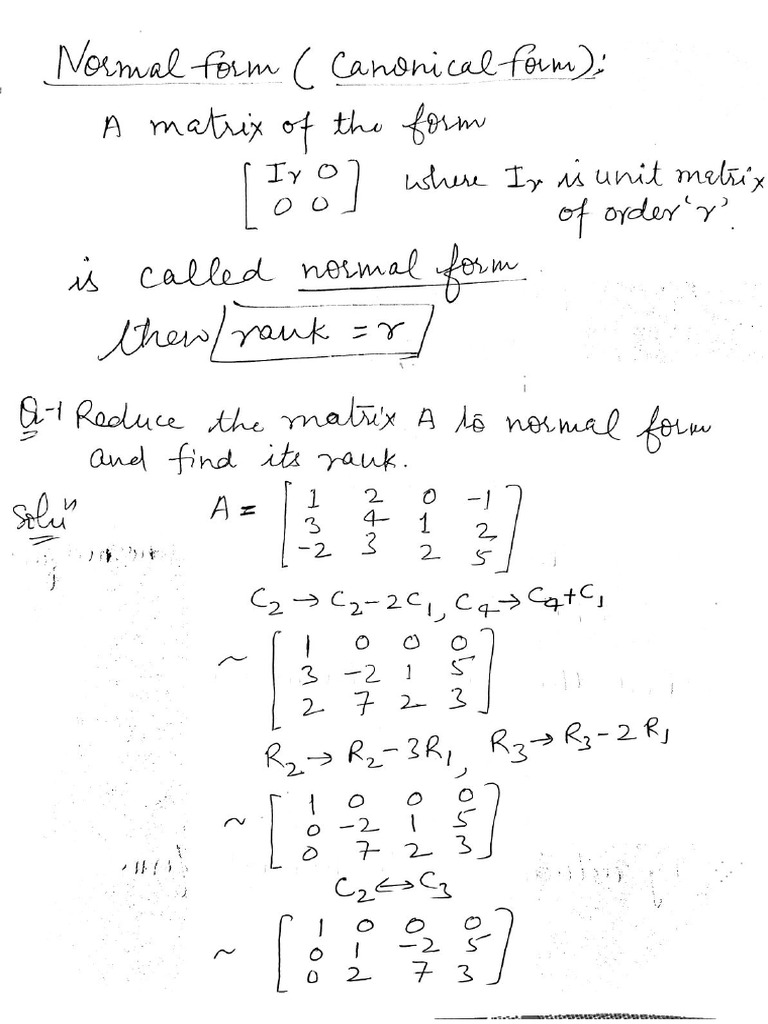 Normal form (Canonical form):
A matrix of the form
[Ir 0
0 0] where Ir is unit matrix
of order 'r'.
is called normal form
then rank = r
Q-1 Reduce the matrix A to normal form
and find its rank.
Soluⁿ A = [1 2 0 -1
3 4 1 2
-2 3 2 5]
C2 → C2-2C1, C4 → C4+C1
~ [1 0 0 0
3 -2 1 5
2 7 2 3]
R2 → R2-3R1, R3 → R3-2R1
~ [1 0 0 0
0 -2 1 5
0 7 2 3]
C2 ↔ C3
~ [1 0 0 0
0 1 -2 5
0 2 7 3]